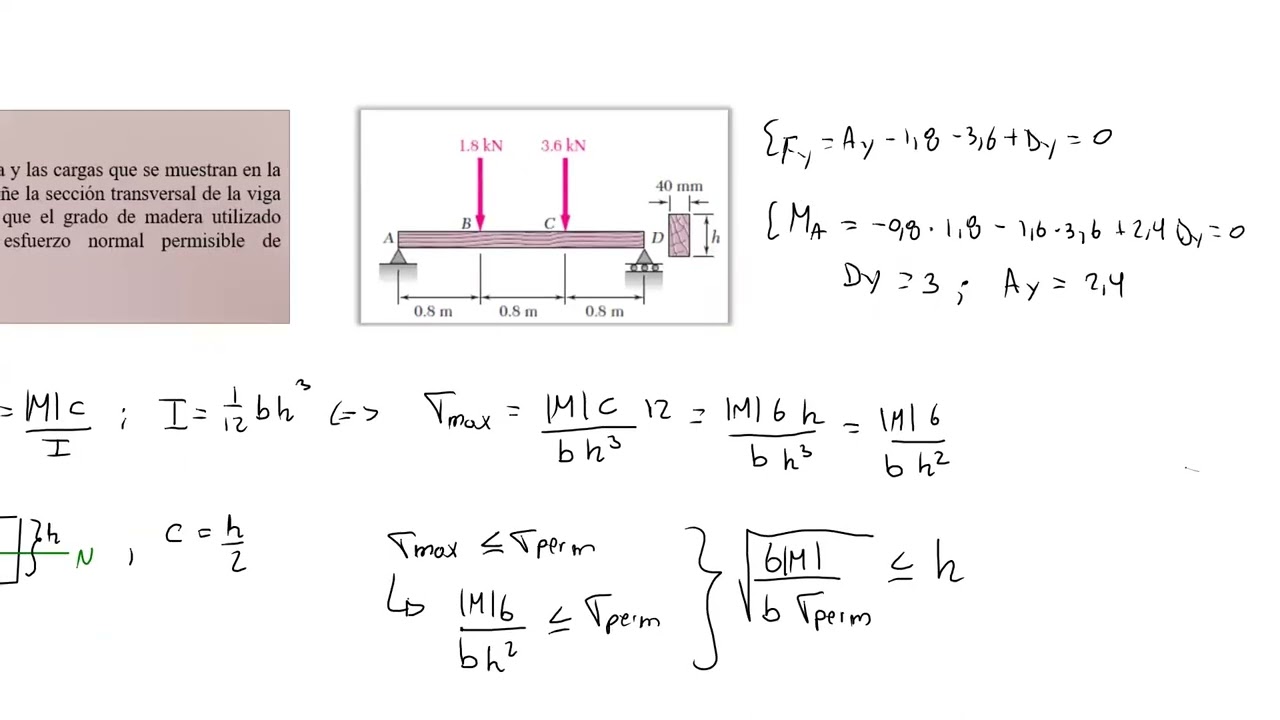 a y las cargas que se muestran en la
ñe la sección transversal de la viga
que el grado de madera utilizado
esfuerzo normal permisible de
1.8 kN 3.6 kN
40 mm
A B C D h
0.8 m 0.8 m 0.8 m
ΣFy = Ay - 1,8 - 3,6 + Dy = 0
ΣMA = -0,8 · 1,8 - 1,6 · 3,6 + 2,4 Dy = 0
Dy = 3 ; Ay = 2,4
= |M| c / I ; I = 1/12 bh³ <=> σmax = |M| c 12 / b h³ = |M| 6 h / b h³ = |M| 6 / b h²
} h N , c = h/2
σmax ≤ σperm
↳ |M| 6 / b h² ≤ σperm } √(6|M| / b σperm) ≤ h